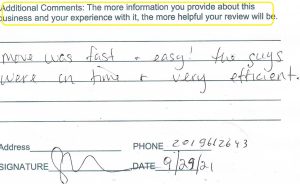 Additional Comments: The more information you provide about this
business and your experience with it, the more helpful your review will be.
move was fast + easy! the guys
were on time + very efficient.
Address
PHONE 2019612643
SIGNATURE DATE 9/29/21